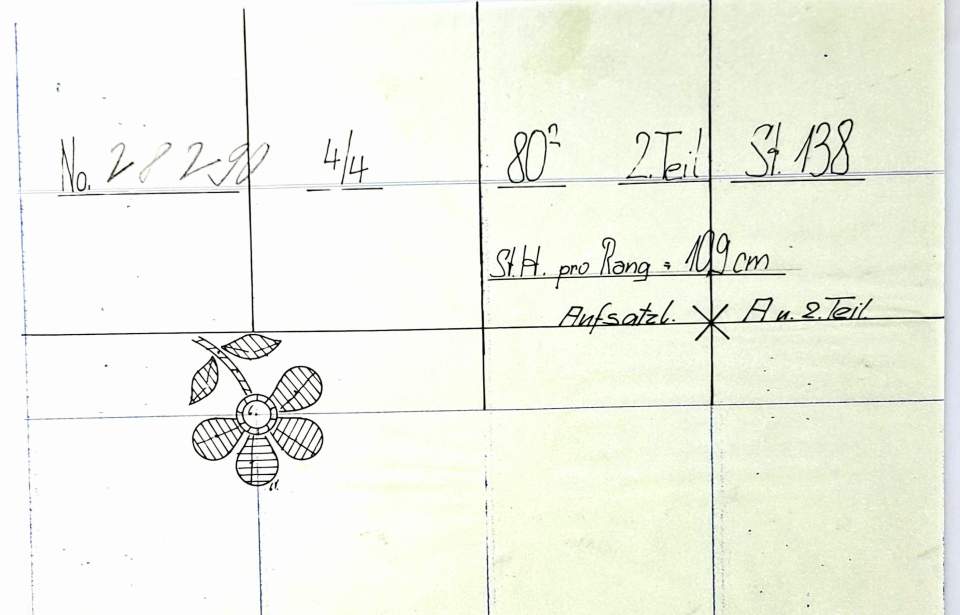 No. 28290 4/4 80² 2. Teil St. 138
St. H. pro Rang = 109 cm
Aufsatzl. A u. 2. Teil